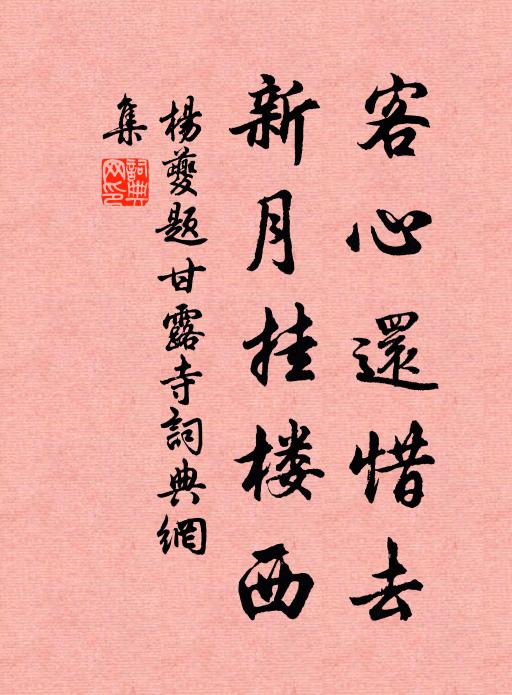 客心還惜去
新月挂楼西
楊夔题甘露寺詞典網
集
詞典
网印